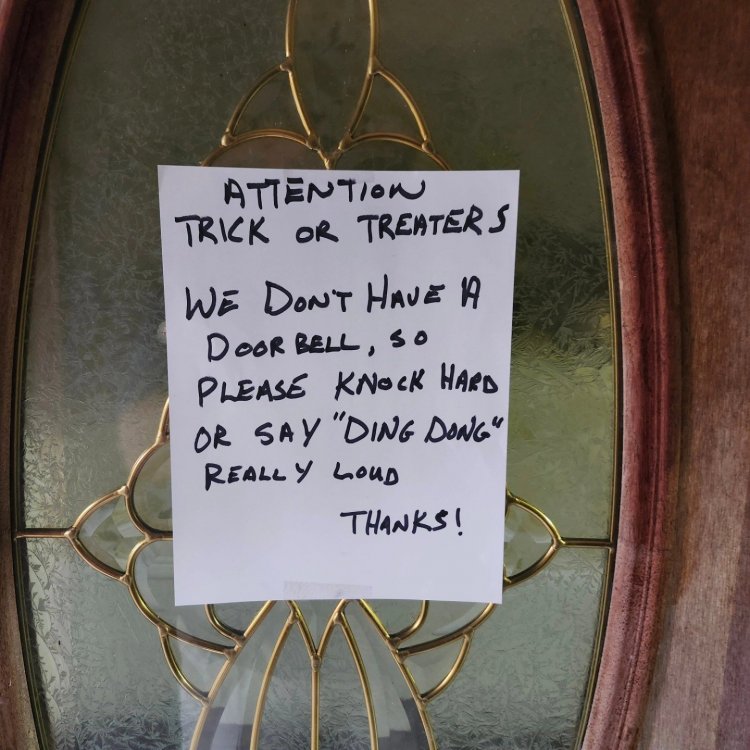 ATTENTION
TRICK OR TREATERS
WE DON'T HAVE A
DOORBELL, SO
PLEASE KNOCK HARD
OR SAY "DING DONG"
REALLY LOUD
THANKS!